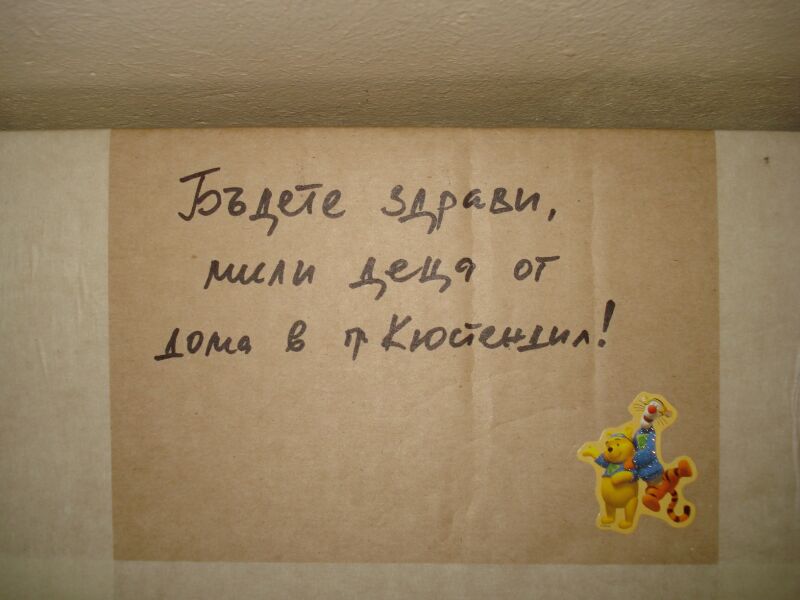 Бъдете здрави,
мили деца от
дома в гр Кюстендил!